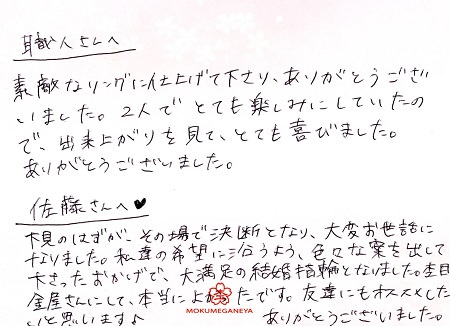 職人さんへ
素敵なリングに仕上げて下さり、ありがとうござ
いました。2人で とても楽しみにしていたの
で、出来上がりを見て、とても喜びました。
ありがとうございました。
佐藤さんへ♥
下見のはずが、その場で決断となり、大変お世話に
なりました。私達の希望に沿うよう、色々な案を出して
下さったおかげで、大満足の結婚指輪となりました。杢目
金屋さんにして、本当によかったです。友達にもオススメした
いと思います♪
ありがとうございました。
MOKUMEGANEYA